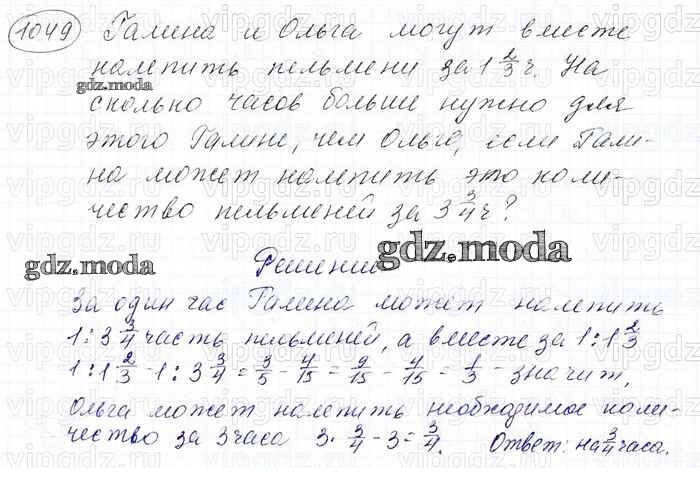 1049 Галина и Ольга могут вместе
налепить пельмени за 1 2/3 ч. На
gdz.moda
сколько часов больше нужно для
этого Галине, чем Ольге, если Гали-
на может налепить это коли-
чество пельменей за 3 3/4 ч?
Решение
gdz.moda
gdz.moda
За один час Галина может налепить
1 : 3 3/4 часть пельменей, а вместе за 1 : 1 2/3
1 : 1 2/3 - 1 : 3 3/4 = 3/5 - 4/15 = 9/15 - 4/15 = 1/3 - значит,
Ольга может налепить необходимое коли-
чество за 3 часа 3 · 3/4 - 3 = 3/4. Ответ: на 3/4 часа.